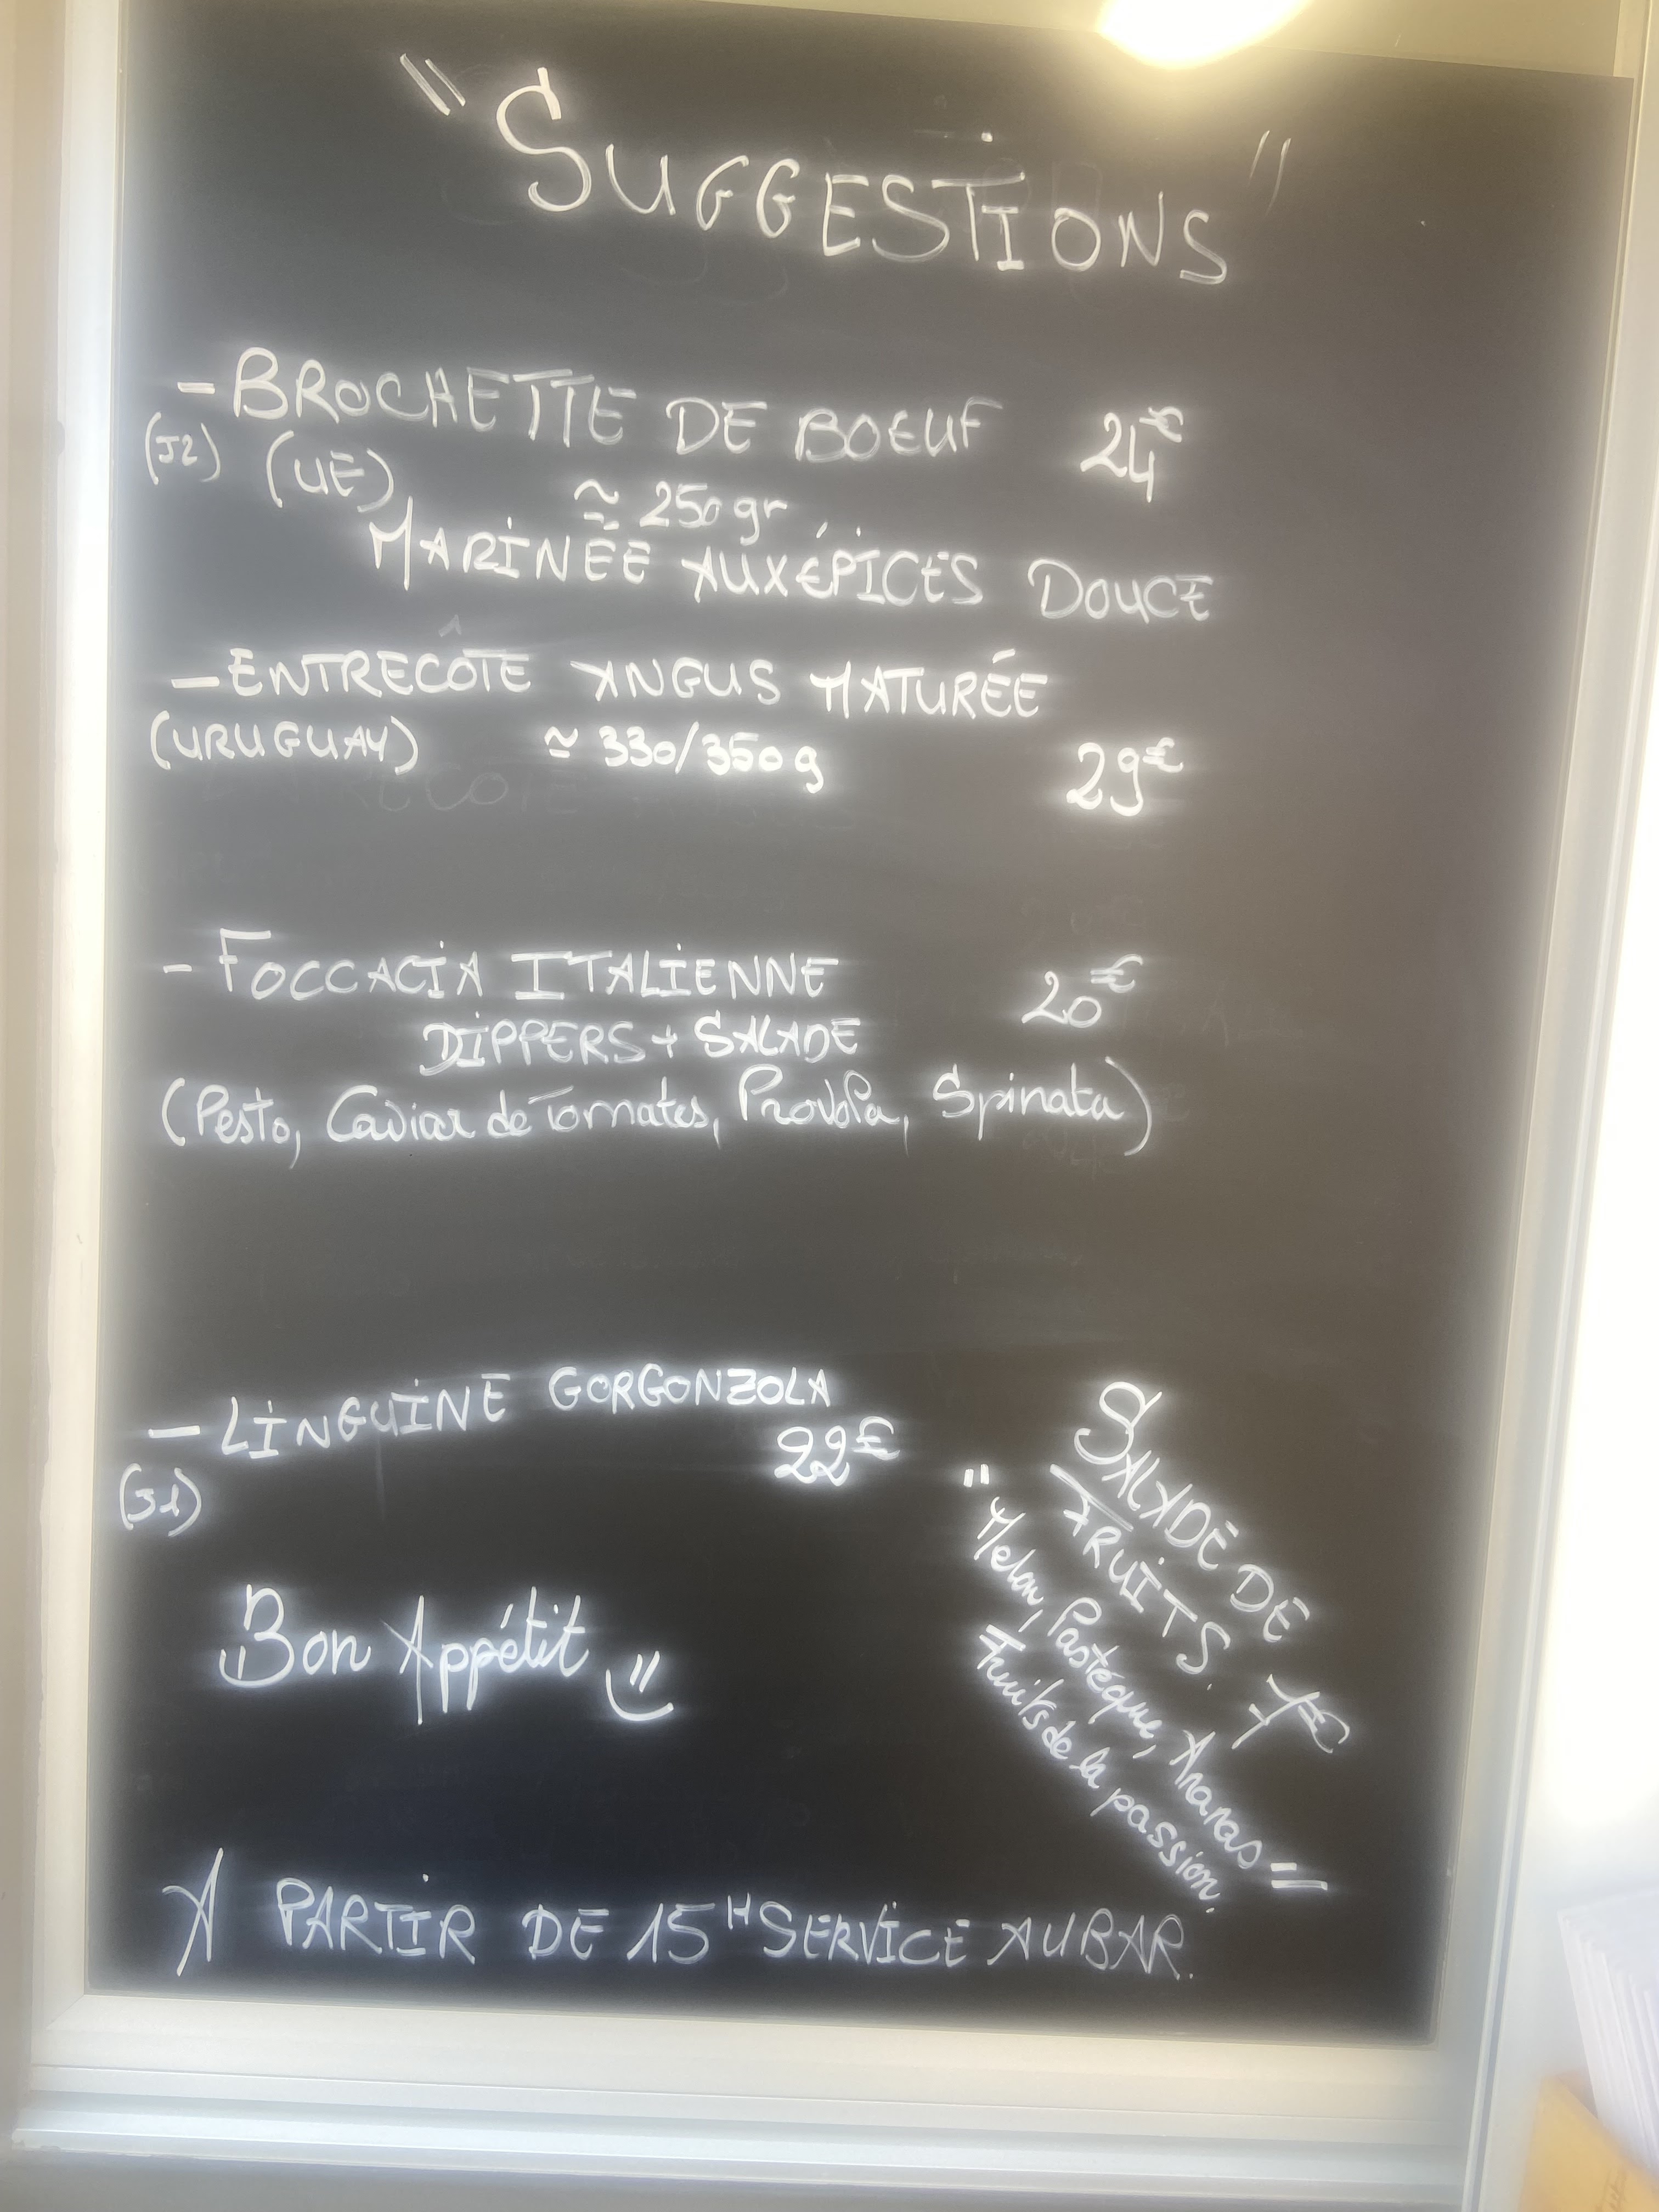 "SUGGESTIONS"
- BROCHETTE DE BOEUF 24€
(J2) (UE) ≃ 250gr
MARINÉE AUX ÉPICES DOUCE
- ENTRECÔTE ANGUS MATURÉE
(URUGUAY) ≃ 330/350g 29€
- FOCCACIA ITALIENNE 20€
DIPPERS + SALADE
(Pesto, Caviar de Tomates, Provola, Spinata)
- LINGUINE GORGONZOLA
22€
(J1)
SALADE DE
FRUITS. 7€
"Melon, Pastèque, Ananas"
Fruits de la passion.
Bon Appétit
A PARTIR DE 15H SERVICE AU BAR.